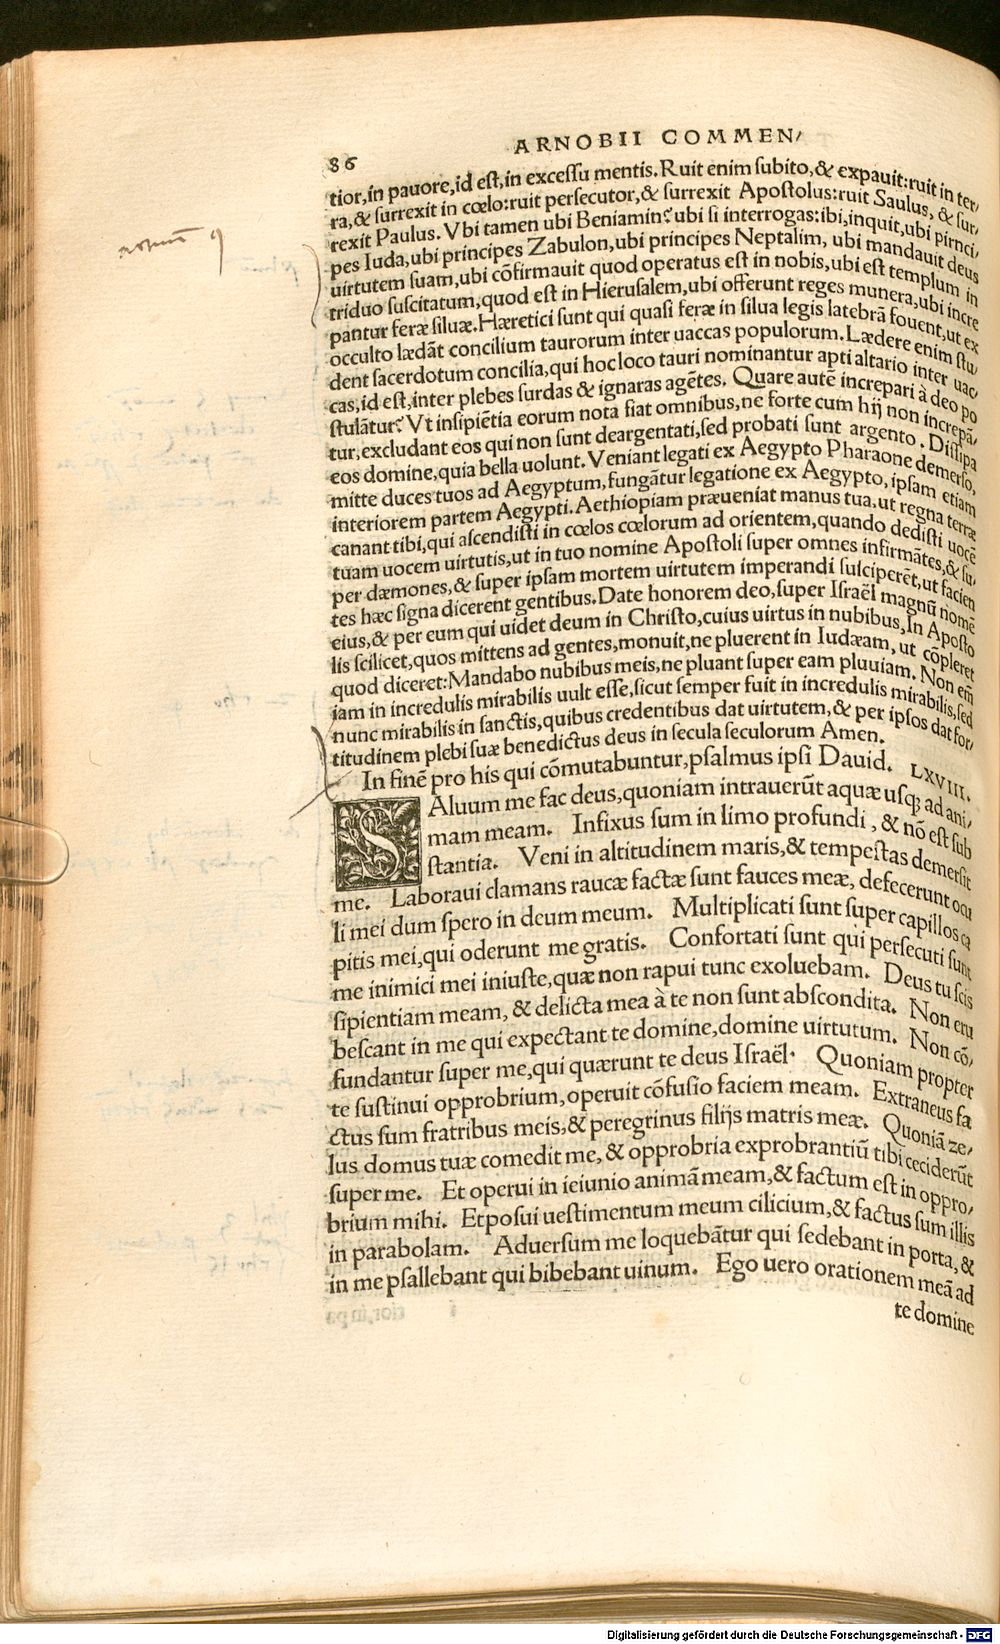 86
ARNOBII COMMEN/
tior,in pauore,id est,in excessu mentis.Ruit enim subito,& expauit:ruit in ter/
ra,& surrexit in cœlo:ruit persecutor,& surrexit Apostolus:ruit Saulus, & sur/
rexit Paulus. Vbi tamen ubi Beniamin? ubi si interrogas:ibi,inquit,ubi pirnci/
pes Iuda,ubi principes Zabulon,ubi principes Neptalim, ubi mandauit deus
uirtutem suam,ubi cõfirmauit quod operatus est in nobis,ubi est templum in
triduo suscitatum,quod est in Hierusalem,ubi offerunt reges munera,ubi incre
pantur feræ siluæ.Hæretici sunt qui quasi feræ in silua legis latebrã fouent,ut ex
occulto lædãt concilium taurorum inter uaccas populorum.Lædere enim stu/
dent sacerdotum concilia,qui hoc loco tauri nominantur apti altario inter uac/
cas,id est,inter plebes surdas & ignaras agẽtes. Quare autẽ increpari à deo po
stulãtur? Vt insipiẽtia eorum nota fiat omnibus,ne forte cum hij non increpã/
tur,excludant eos qui non sunt deargentati,sed probati sunt argento. Dissipa
eos domine,quia bella uolunt.Veniant legati ex Aegypto Pharaone demerso,
mitte duces tuos ad Aegyptum,fungãtur legatione ex Aegypto,ipsam etiam
interiorem partem Aegypti.Aethiopiam præueniat manus tua.ut regna terræ
canant tibi,qui ascendisti in cœlos cœlorum ad orientem,quando dedisti uocẽ
tuam uocem uirtutis,ut in tuo nomine Apostoli super omnes infirmãtes,& su/
per dæmones,& super ipsam mortem uirtutem imperandi susciperẽt,ut facien
tes hæc signa dicerent gentibus.Date honorem deo,super Israël magnũ nomẽ
eius,& per eum qui uidet deum in Christo,cuius uirtus in nubibus,In Aposto
lis scilicet,quos mittens ad gentes,monuit,ne pluerent in Iudæam, ut cõpleret
quod diceret:Mandabo nubibus meis,ne pluant super eam pluuiam. Non em̃
iam in incredulis mirabilis uult esse,sicut semper fuit in incredulis mirabilis,sed
nunc mirabilis in sanctis,quibus credentibus dat uirtutem,& per ipsos dat for/
titudinem plebi suæ benedictus deus in secula seculorum Amen.
In finẽ pro his qui cõmutabuntur,psalmus ipsi Dauid. LXVIII.
SAluum me fac deus,quoniam intrauerũt aquæ usq; ad ani/
mam meam. Infixus sum in limo profundi, & nõ est sub
stantia. Veni in altitudinem maris,& tempestas demersit
me. Laboraui clamans raucæ factæ sunt fauces meæ, defecerunt ocu
li mei dum spero in deum meum. Multiplicati sunt super capillos ca
pitis mei,qui oderunt me gratis. Confortati sunt qui persecuti sunt
me inimici mei iniuste,quæ non rapui tunc exoluebam. Deus tu scis
sipientiam meam, & delicta mea à te non sunt abscondita. Non eru
bescant in me qui expectant te domine,domine uirtutum. Non cõ/
fundantur super me,qui quærunt te deus Israël. Quoniam propter
te sustinui opprobrium,operuit cõfusio faciem meam. Extraneus fa
ctus sum fratribus meis,& peregrinus filijs matris meæ. Quoniã ze/
lus domus tuæ comedit me, & opprobria exprobrantiũ tibi ceciderũt
super me. Et operui in ieiunio animã meam,& factum est in oppro/
brium mihi. Et posui uestimentum meum cilicium,& factus sum illis
in parabolam. Aduersum me loquebãtur qui sedebant in porta, &
in me psallebant qui bibebant uinum. Ego uero orationem meã ad
te domine
Digitalisierung gefördert durch die Deutsche Forschungsgemeinschaft - DFG